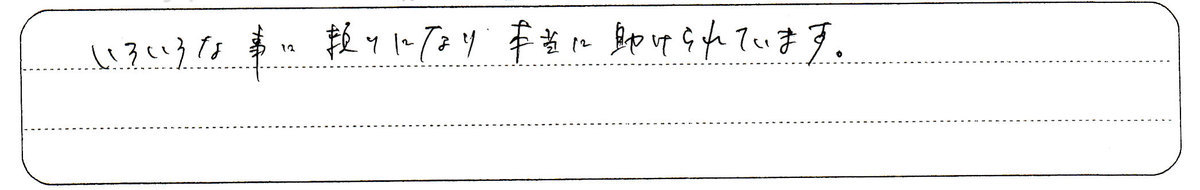 いろいろな事に頼りになり本当に助けられています。